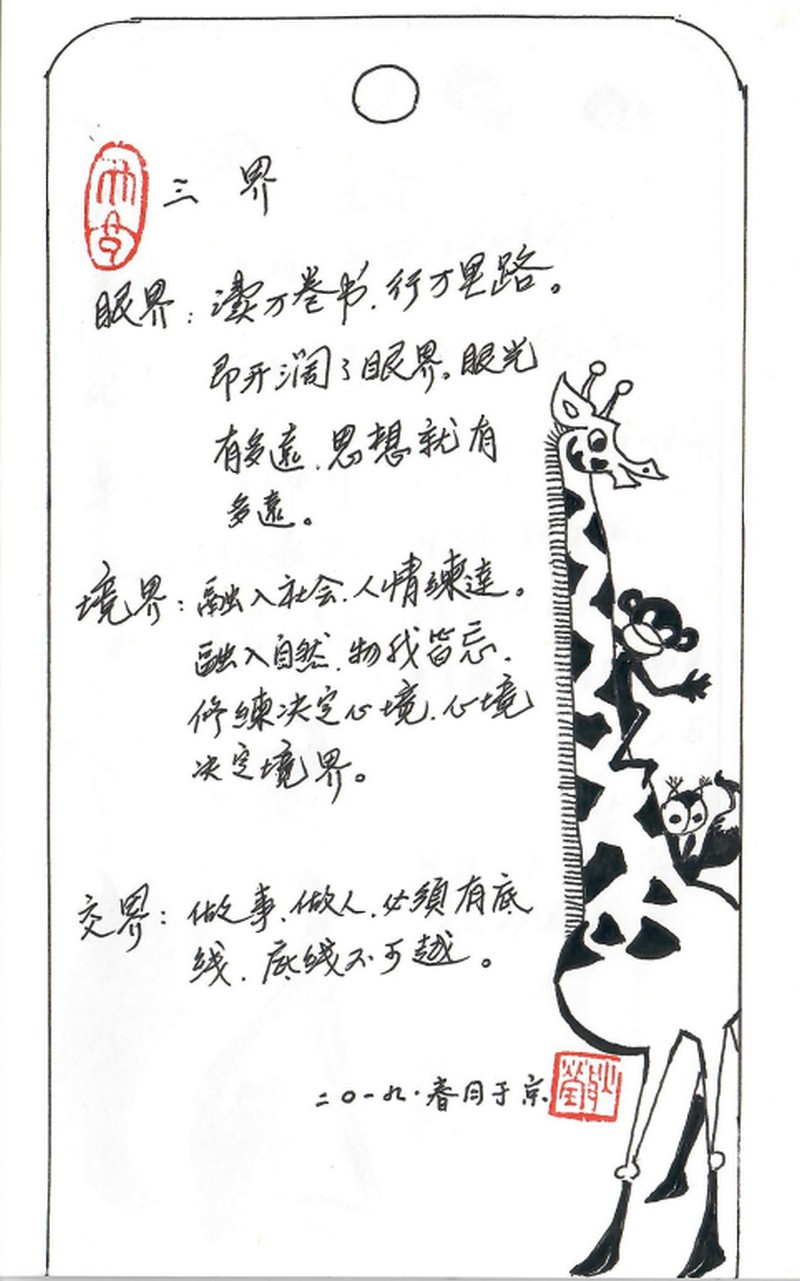 三 界
眼界：读万卷书.行万里路。
即开阔了眼界。眼光
有多遠.思想就有
多遠。
境界：融入社会.人情練達。
融入自然.物我皆忘.
修練决定心境.心境
决定境界。
交界：做事.做人.必須有底
线.底线不可越。
二〇一九·春月于京